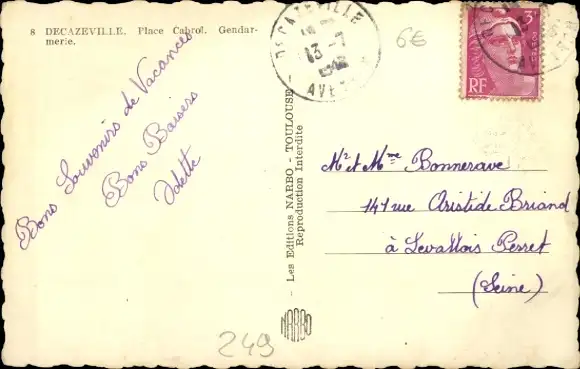 8 DECAZEVILLE. Place Cabrol. Gendar-
merie.
Bons Souvenirs de Vacances
Bons Baisers
Odette
- Les Editions NARBO - TOULOUSE -
Reproduction Interdite
NARBO
DECAZEVILLE
13-7
AVEYRON
6€
3F
RF
Mr et Mme Bonnerave
141 rue Aristide Briand
à Levallois Perret
(Seine)
249